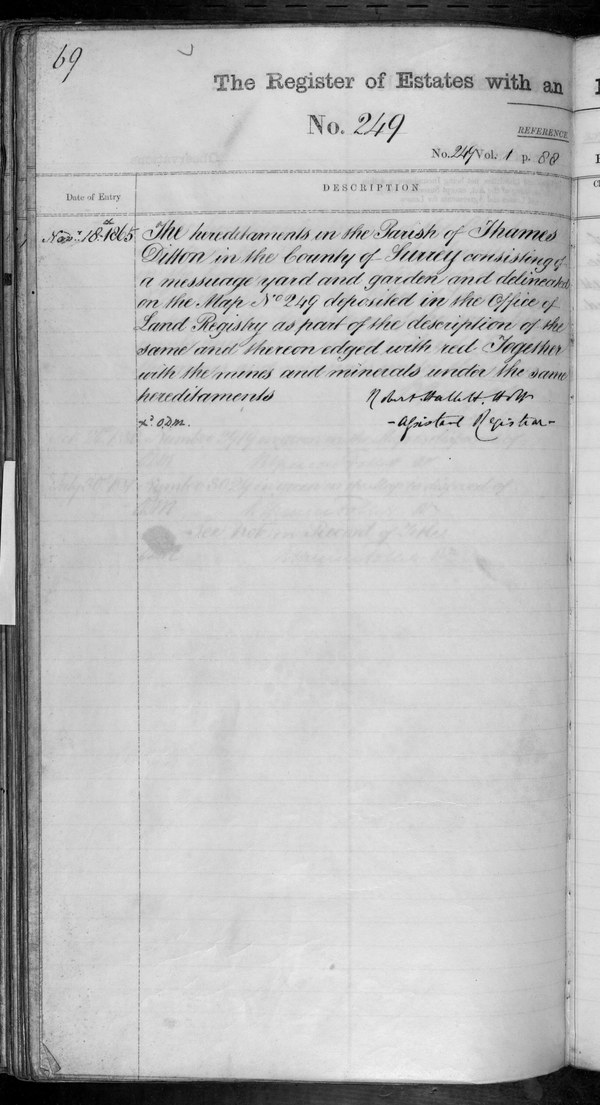 69
The Register of Estates with an
No. 249
REFERENCE
No. 249 Vol. 1 p. 88
Date of Entry
DESCRIPTION
18th 1865 The hereditaments in the Parish of Thames
Ditton in the County of Surrey consisting of
a messuage yard and garden and delineated
on the Map No 249 deposited in the Office of
Land Registry as part of the description of the
same and thereon edged with red Together
with the mines and minerals under the same
hereditaments
Robert Hallett Holt
Assistant Registrar